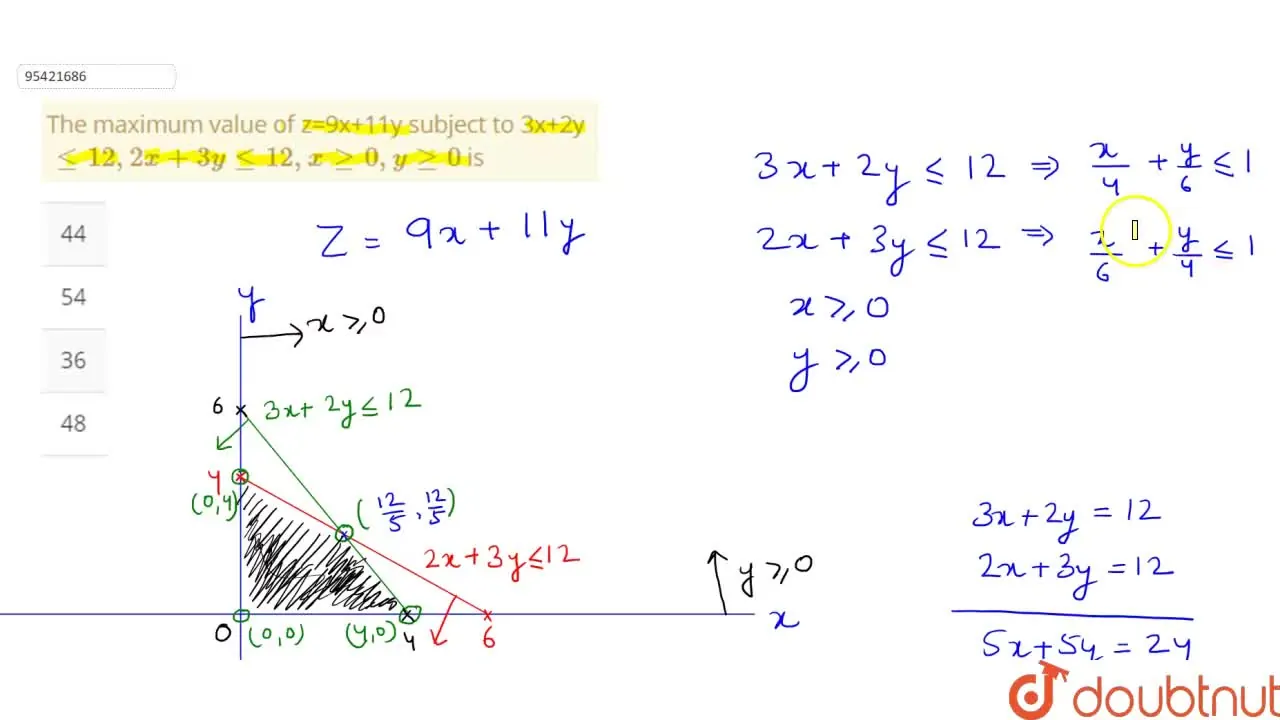 95421686
The maximum value of z=9x+11y subject to 3x+2y
≤ 12, 2x + 3y ≤ 12, x ≥ 0, y ≥ 0 is
44
54
36
48
Z = 9x + 11y
3x + 2y ≤ 12 ⇒ x/4 + y/6 ≤ 1
2x + 3y ≤ 12 ⇒ x/6 + y/4 ≤ 1
x ≥ 0
y ≥ 0
y
x ≥ 0
6
3x + 2y ≤ 12
4
(0,4)
(12/5, 12/5)
2x + 3y ≤ 12
y ≥ 0
x
0
(0,0)
(4,0)
4
6
3x + 2y = 12
2x + 3y = 12
5x + 5y = 24
doubtnut